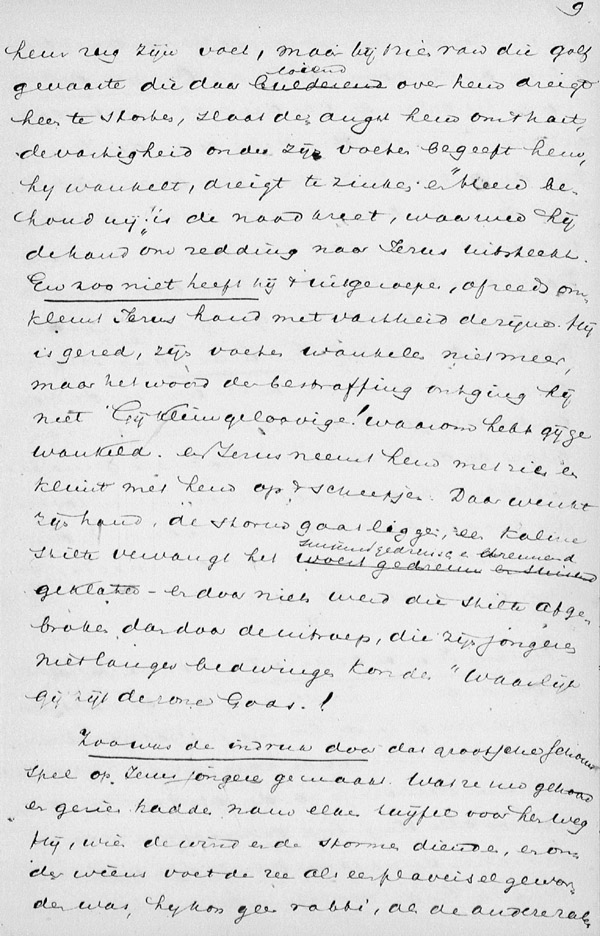 9
heur rug zijn voet, maar bij 't zien van die golf
gevaarte die daar loeiend bulderend over hem dreigt
heen te storten, slaat de angst hem om 't hart,
de vastigheid onder zijn voeten begeeft hem,
hij wankelt, dreigt te zinken en "Heer be-
houd mij!" is de noodkreet, waarmee hij
de hand om redding naar Jezus uitsteekt.
En zoo niet heeft hij 't uitgeroepen, of reeds om-
klemt Jezus hand met vastheid de zijne. Hij
is gered, zijn voeten wankelen niet meer,
maar het woord der bestraffing ontging hij
niet "Gij kleingeloovige! waarom hebt gij ge
wankeld. en Jezus neemt hem met zich en
klimt met hem op 't scheepje. Daar wenkt
zijn hand, de storm gaat liggen, een kalme
stilte vervangt het woest gedreun en
geklater - en door niets werd die stilte afge-
broken dan door de uitroep, die zijn jongeren
niet langer bedwingen konden "Waarlijk
gij zijt de zone Gods.!
Zoo was de indruk door dat grootsche schouw
spel op Jezus jongeren gemaakt. Wat ze nu gehoord
en gezien hadden nam elken twijfel voor hen weg
Hij, wien de wind en de stormen dienden, en on-
der wiens voet de zee als een plaveisel gewor-
den was, hij kon geen rabbi, als de andere zijn